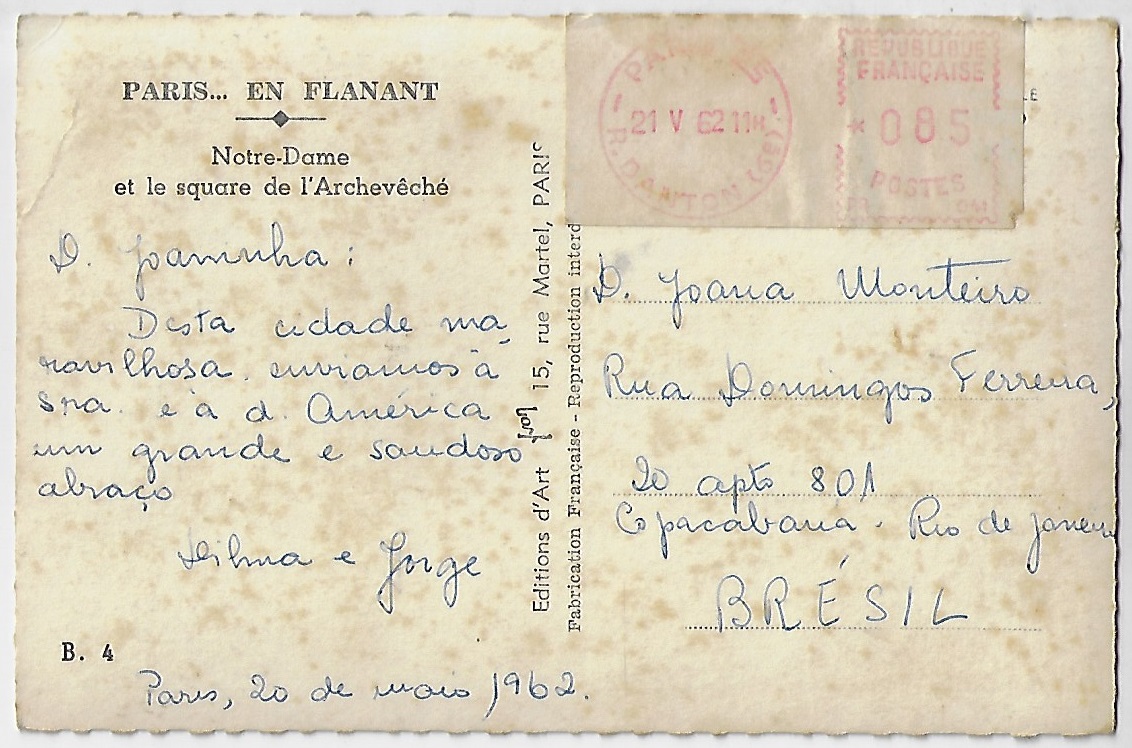 PARIS... EN FLANANT
Notre-Dame
et le square de l'Archevêché
D. Joaninha:
Desta cidade ma
ravilhosa enviamos à
sra. e à d. América
um grande e saudoso
abraço
e Jorge
B. 4
Paris, 20 de maio 1962.
Editions d'Art 15, rue Martel, PARIS
Fabrication Française - Reproduction interd
21 V 62 11H
R. DANTON (6E)
REPUBLIQUE
FRANÇAISE
* 085
POSTES
LE
D. Joana Monteiro
Rua Domingos Ferreira,
20 apto 801
Copacabana - Rio de Janeiro
BRÉSIL